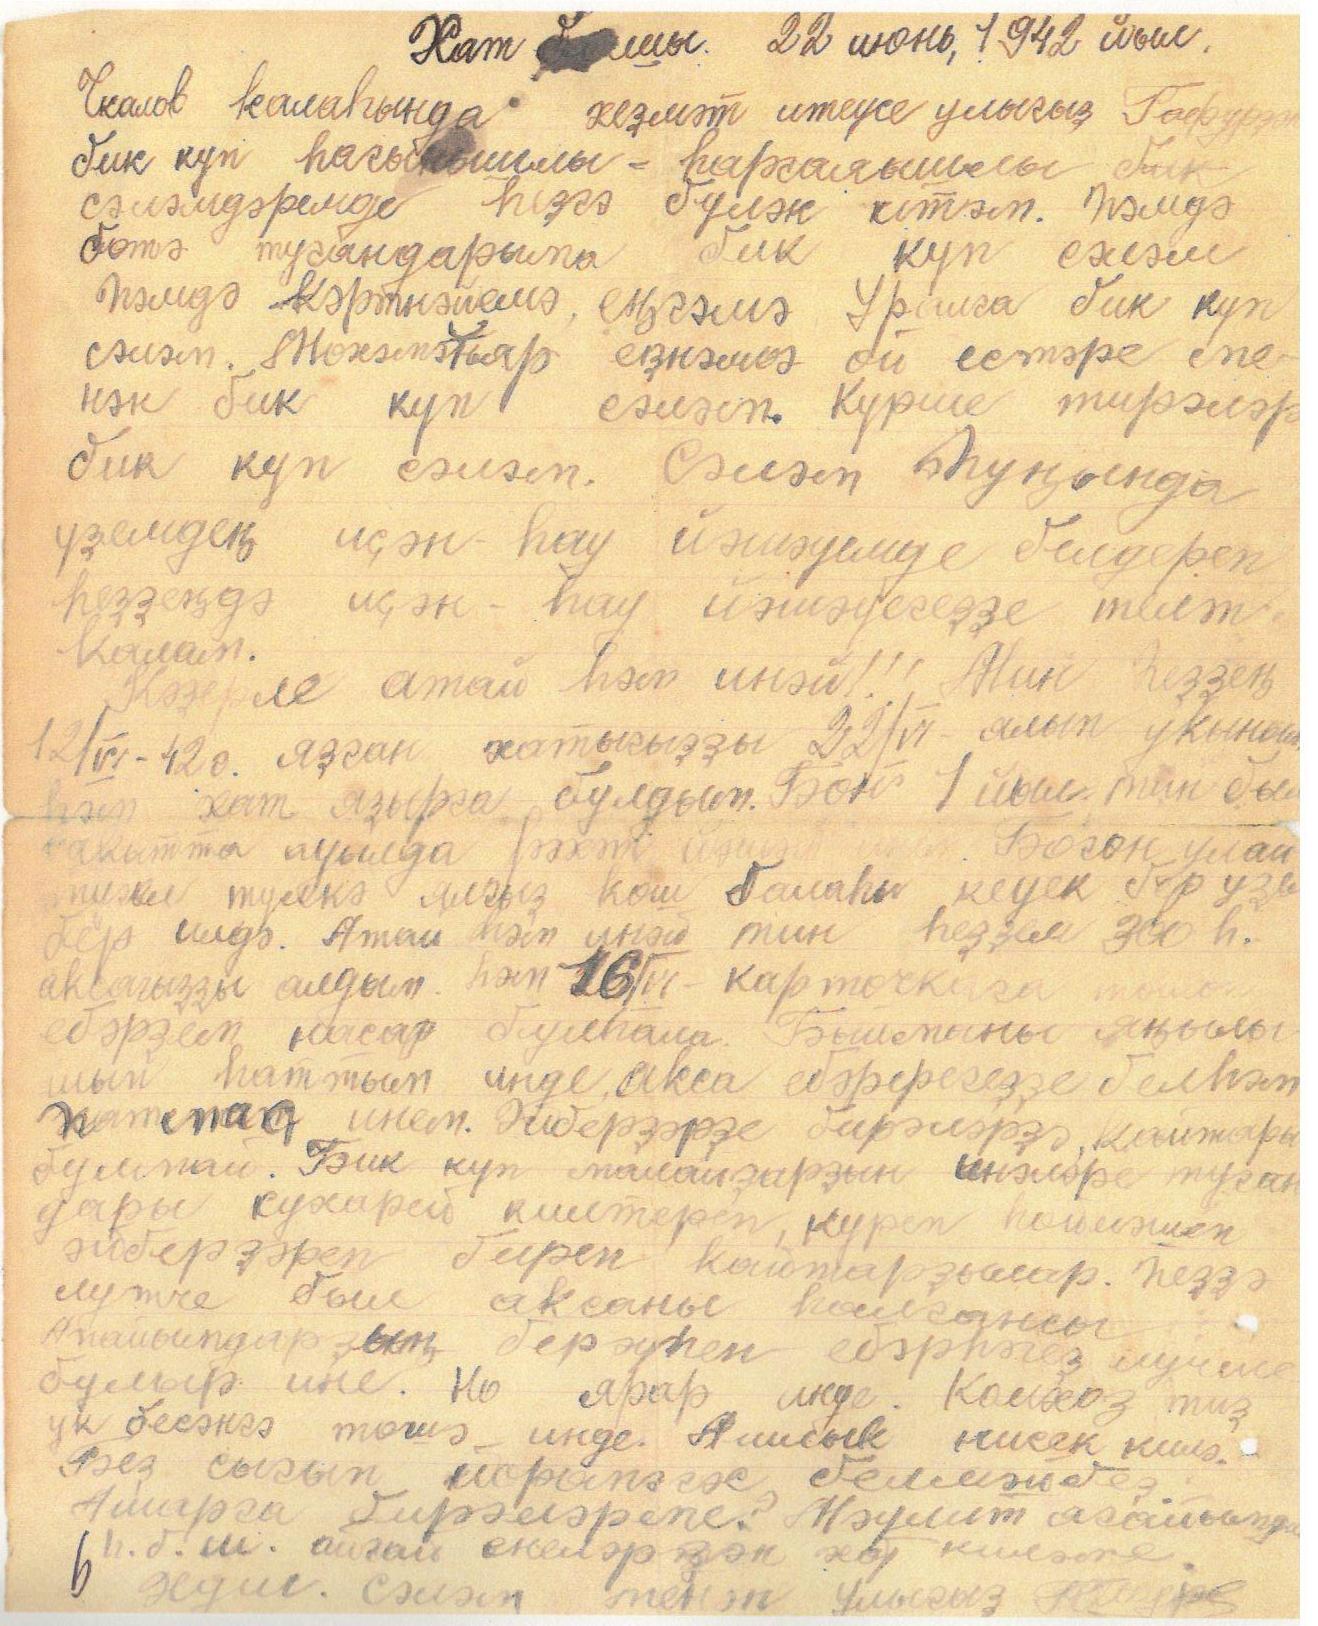 Хат башы. 22 июнь, 1942 йыл.
Чкалов калаһында хеҙмәт итеүсе улығыҙ
бик күп һағынышлы - һарғайышлы бик
сәләмдәремде һеҙгә бүләк итәм. Һәмдә
бөтә туғандарыма бик күп сәләм
Һәмдә Кәртнәйемә, еңгәмә Уралға бик күп
сәләм. Мөхәмәтйар еҙнәмә өй эстәре ме-
нән бик күп сәләм. Күрше тирәләр
бик күп сәләм. Сәләм һуңында
үҙемдең иҫән-һау йәшәүемде белдереп
һеҙҙеңдә иҫән-һау йәшәүегеҙҙе теләп
калам.
Кәҙерле атай һәм инәй!!! Мин һеҙҙең
12/VI-42г. яҙған хатығыҙҙы 22/VI- алып укыным
һәм хат яҙырға булдым. Бөгөн 1 йыл. мин был
вакытта ауылда Бөгөн улай
түгел япғыҙ кош балаһы кеүек бер үҙем
бер илдә. Атай һәм инәй мин һеҙҙең 300 һ.
аксағыҙҙы алдым. һәм 16/VI- карточкаға
ебәрҙем насар булһала. Быйманы яңылы
шып һаттым инде, акса ебәререгеҙҙе белһәм
һатмаҫ инем. Әйберҙәрҙе бирәләрҙә, кайтары
булмай. Бик күп малайҙарҙың инәләре туған
дары сухарей килтереп, күреп һөйләшеп
әйберҙәрен биреп кайтарҙылар. һеҙҙә
лутче был аксаны һалғансы
Апайымдарҙың береһен ебәрһәгеҙ лучше
булыр ине. Но ярар инде. Колхоз тиҙ
ук бесәнгә төшә инде. Ашлык нисек килә.
Беҙ сығып йөрөмәгәс, белмәйбеҙ.
Ашарға бирәләрме? Мәүлит ағайымдан
һ.б.ш. ағай енеләрҙән хат киләме.
Эҙил. сәләм менән Улығыҙ